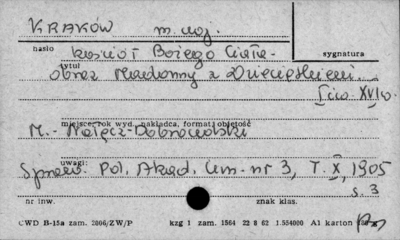 KRAKÓW m. woj.
hasło kościół Bożego Ciała - sygnatura
tytuł
obraz Madonny z Dzieciątkiem.
I ćw. XVI w.
miejsce, rok wyd., nakładca, format, objętość
M. - Nałęcz-Dobrowolski
uwagi:
Spraw. Pol. Akad. Um. nr 3, T. X, 1905
s. 3
nr inw. znak klas.
CWD B-15a zam. 2006/ZW/P kzg 1 zam. 1564 22 8 62 1.554000 A1 karton